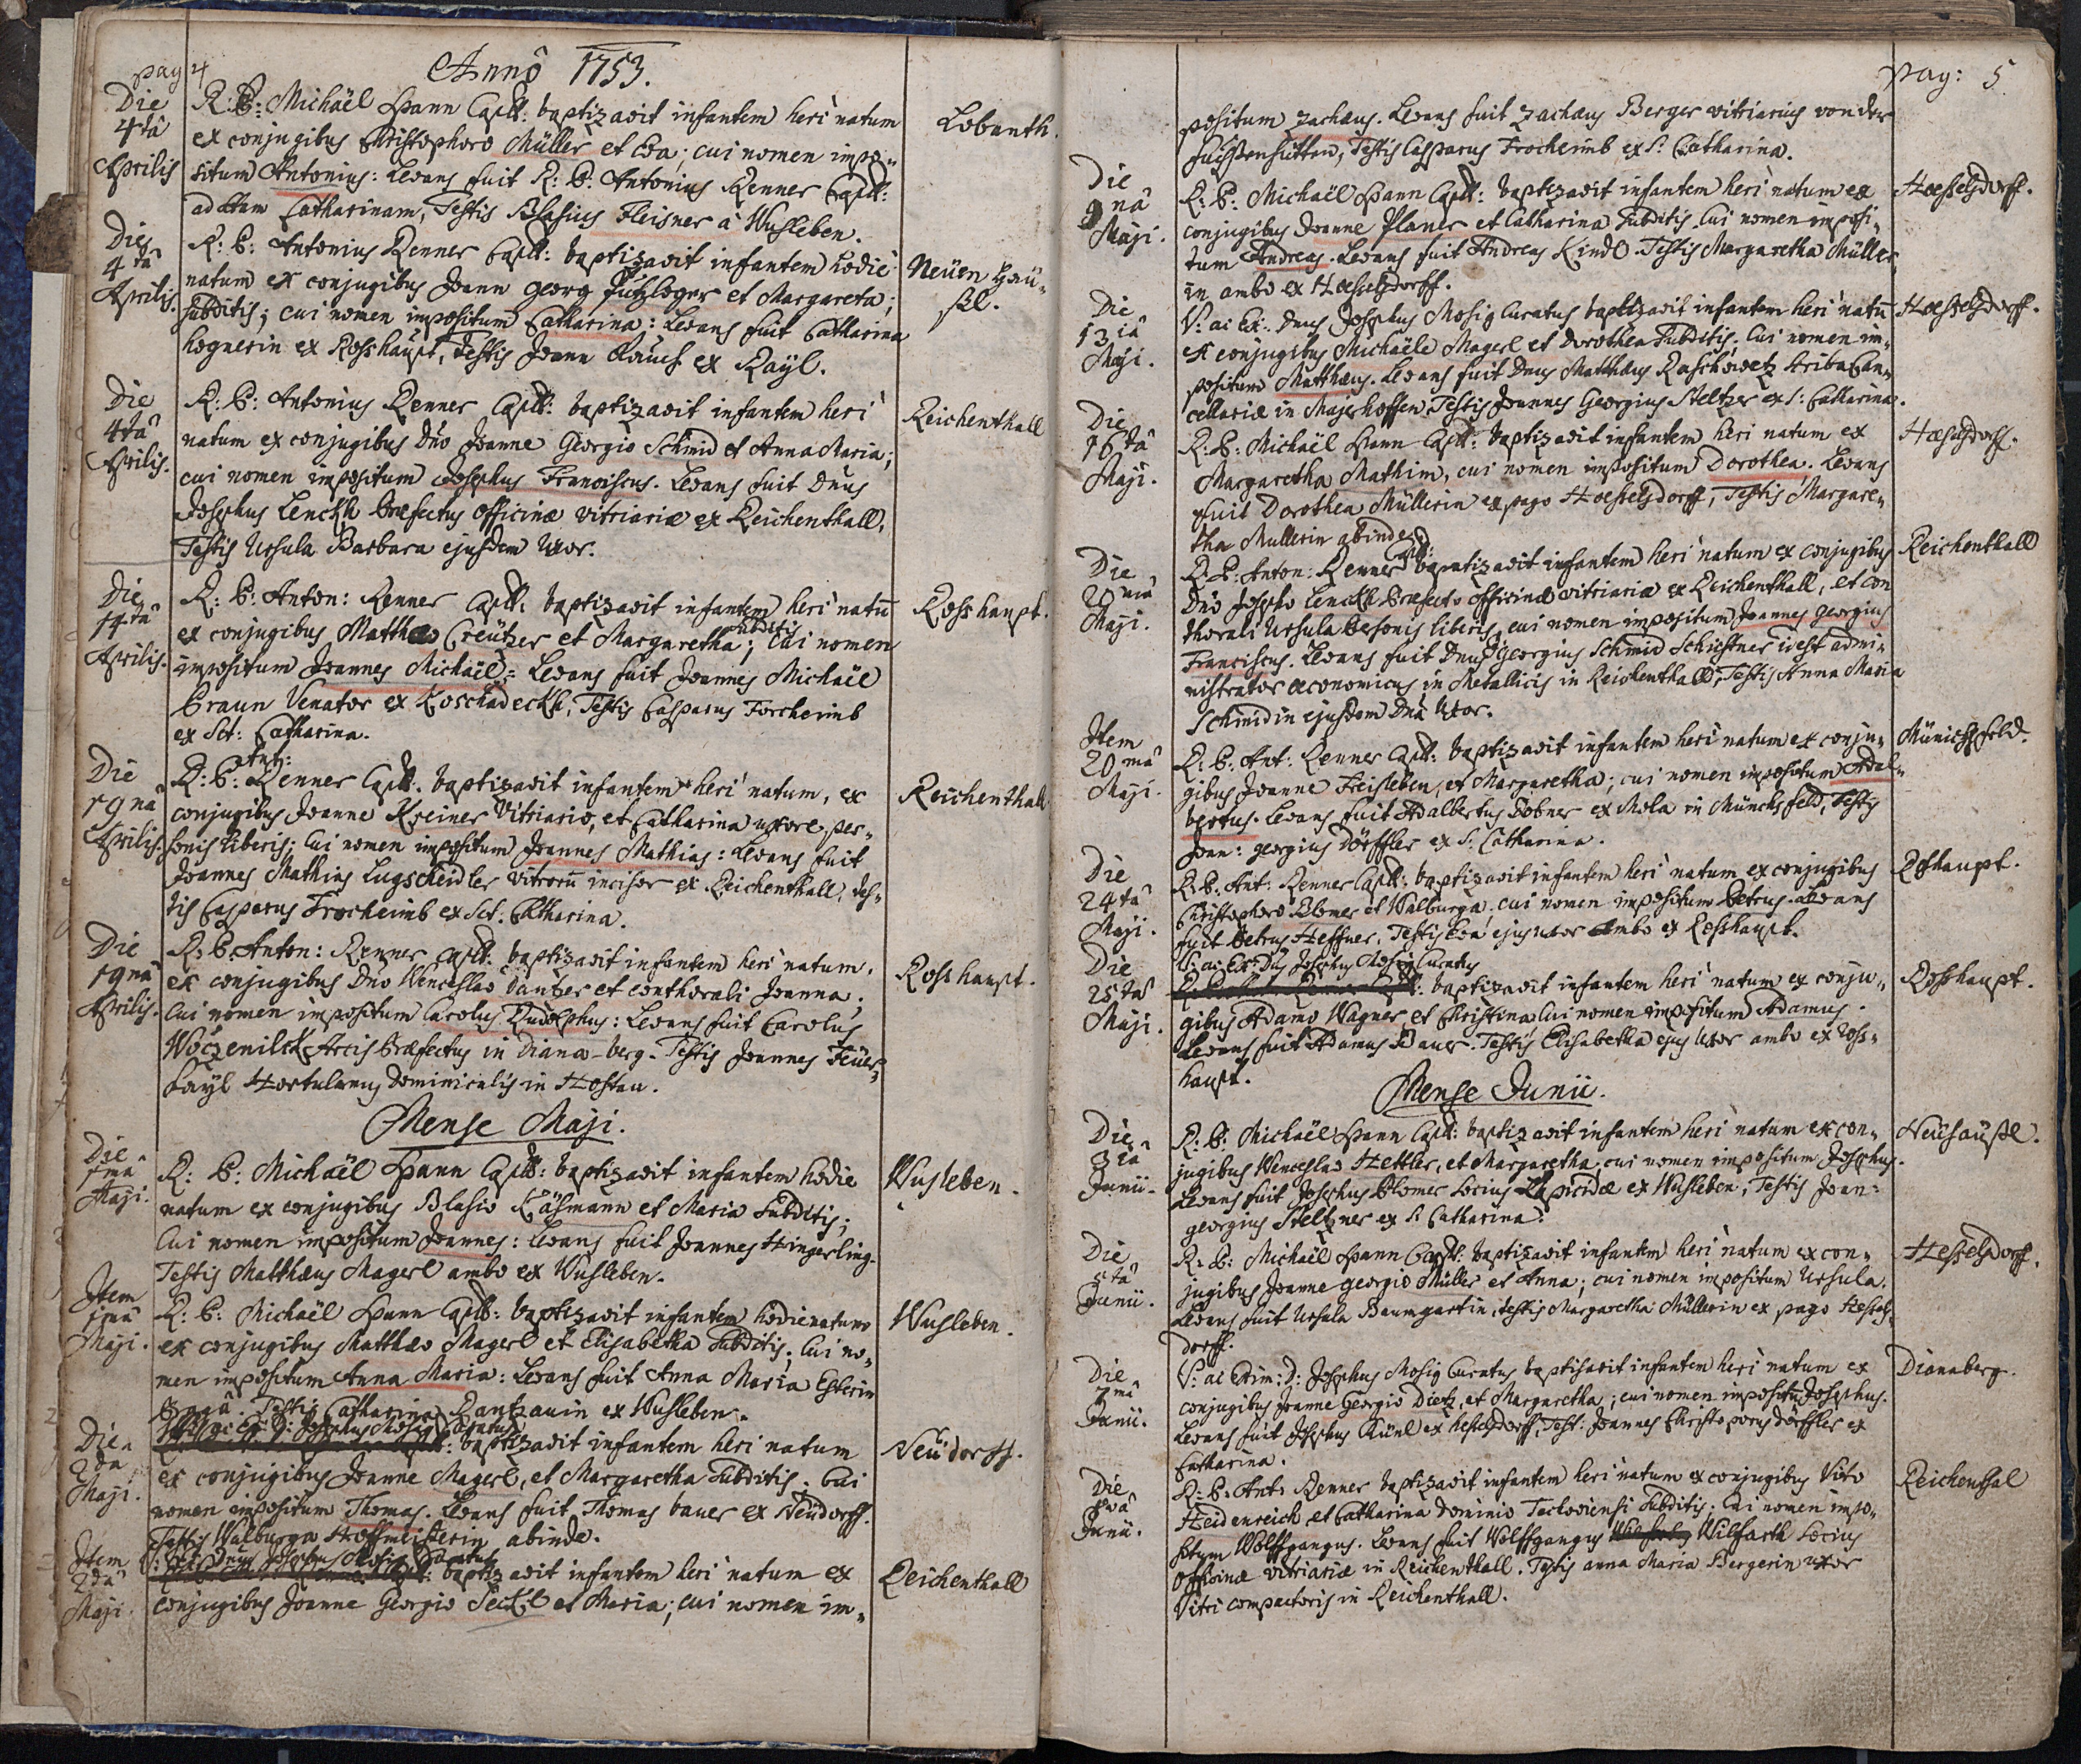 pag 4
Annô 1753.
Die 4tâ Aprilis
R: P: Michaël Hann Capll: baptizavit infantem heri natum
ex conjugibus Christophoro Müller et Eva; cui nomen impo-
situm Antonius: Levans fuit R: P: Antonius Renner Capll:
ad Stam Catharinam, Testis Blasius Fleisner à Wusleben.
Die 4tâ Aprilis
R: P: Antonius Renner Capll: baptizavit infantem hodie
Neüen Haü-
natum ex conjugibus Joann Georg et Margareta;
sl.
subditis; cui nomen impositum Catharina: Levans fuit Catharina
Hognerin ex Rosshaupt, Testis Joann Rauch ex Rayl.
Die 4tâ Aprilis.
R: P: Antonius Renner Capll: baptizavit infantem heri
Reichenthall
natum ex conjugibus Dno Joanne Georgio Schmid et Anna Maria;
cui nomen impositum Josephus Franciscus. Levans fuit Dnus
Josephus Lenckh Præfectus officinæ vitriariæ ex Reichenthall,
Testis Ursula Barbara ejusdem Uxor.
Die 14tâ Aprilis.
R: P: Anton: Renner Capll: baptizavit infantem heri natū
Rosshaupt.
ex conjugibus Matthæo Creützer et Margaretha subditis; Cui nomen
impositum Joannes Michaël: Levans fuit Joannes Michaël
Braun Venator ex Roschadeckh, Testis Casparus Forcheimb
ex Sct: Catharina.
Die 19nâ Aprilis.
R: P: Ant: Renner Capll. baptizavit infantem heri natum, ex
Reichenthall
conjugibus Joanne Kreiner Vitriario, et Catharina uxore per-
sonis liberis; Cui nomen impositum Joannes Mathias: Levans fuit
Joannes Mathias Lugscheidler vitrorū incisor ex Reichenthall, Tes-
tis Casparus Frocheimb ex Sct. Catharina.
Die 19nâ Aprilis.
R: P. Anton: Renner Capll. baptizavit infantem heri natum,
Rosshaupt.
ex conjugibus Dno Wenceslao Dantzer et conthorali Joanna;
Cui nomen impositum Carolus Rudolphus: Levans fuit Carolus
Woczenilek Arcis Præfectus in Diana-berg. Testis Joannes Feüer-
bayl Hortulanus Dominicalis in Hostau.
Mense Maji.
Die 1mâ Maji.
R: P: Michaël Hann Capll: baptizavit infantem hodie
Wusleben.
natum ex conjugibus Blasio Käsmann et Maria Subditis;
Cui nomen impositum Joannes: Levans fuit Joannes Hingerling.
Testis Matthæus Magerl ambo ex Wusleben.
Item 1mâ Maji.
R: P: Michaël Hann Capll: baptizavit infantem hodie natum
Wusleben.
ex conjugibus Matthæo Magerl et Elisabetha Subditis; Cui no-
men impositum Anna Maria: Levans fuit Anna Maria Esterin
Testis Catharina Rantzauin ex Wusleben.
Die 2da Maji.
Josephus Mosig Curatus
baptizavit infantem heri natum
Neüdorff.
ex conjugibus Joanne Magerl, et Margaretha Subditis. Cui
nomen impositum Thomas. Levans fuit Thomas bauer ex Neüdorff.
Testis Walburga Hoffmeisterin abinde.
Item 2dâ Maji
Dnus Josephus Mosig Curatus
baptizavit infantem heri natum ex
Reichenthall
conjugibus Joanne Georgio Seckl et Maria; cui nomen im-
pag: 5
positum Zachæus. Levans fuit Zachæus Berger vitriarius von der
Testis Casparus Frocheimb ex S: Catharina.
Die 9nâ Maji.
R: P: Michaël Hann Capll: baptizavit infantem heri natum ex
Hoesselsdorff.
conjugibus Joanne Planer et Catharina Subditis. Cui nomen imposi-
tum Andreas. Levans fuit Andreas Kindl. Testis Margaretha Müller,
in ambo ex Hoesselsdorff.
Die 13iâ Maji.
V: ac Ex: Dnus Josephus Mosig Curatus baptizavit infantem heri natū
Hoesselsdorff.
ex conjugibus Michaële Magerl et Dorothea Subditis. Cui nomen im-
positum Matthæus. Levans fuit Dnus Matthæus Raschowetz scriba Can-
cellariæ in Majerhoffen, Testis Joannes Georgius Steltzer ex S: Catharina.
Die 16tâ Maji.
R: P: Michaël Hann Capll: baptizavit infantem heri natum ex
Hoesselsdorff.
Margaretha Mathim, cui nomen impositum Dorothea. Levans
fuit Dorothea Müllerin ex pago Hoesselsdorff, Testis Margare-
tha Mullerin abinde.
Die 20mâ Maji.
R. P: Anton: Renner Capll: baptizavit infantem heri natum ex conjugibus
Reichenthall
Dno Josepho Lenckh Præfecto officinæ vitriariæ ex Reichenthall, et con
thorali Ursula Personis liberis, cui nomen impositum Joannes Georgius
Franciscus. Levans fuit Dnus Georgius Schmid Schichtner id est admi-
nistrator œconomicus in Metallicis in Reichenthall, Testis Anna Maria
Schmidin ejusdem Dni Uxor.
Item 20mâ Maji.
R: P: Ant: Renner Capll: baptizavit infantem heri natum ex conju-
Münichsfeld.
gibus Joanne Freisleben, et Margaretha; cui nomen impositum Adal-
bertus. Levans fuit Adalbertus Dobner ex Mola in Münchsfeld, Testis
Joan: georgius Dörffler ex S: Catharina.
Die 24tâ Maji.
R: P. Ant: Renner Capll: baptizavit infantem heri natum ex conjugibus
Roshaupt.
Christophoro Blomer et Walburga, cui nomen impositum Petrus. Levans
fuit Petrus Heffner, Testis Eva ejus uxor Ambo ex Rosshaupt.
Die 25tâ Maji.
V: ac Ex: Dus Josephus Mosig Curatus
baptizavit infantem heri natum ex conju-
Rosshaupt.
gibus Adamo Wagner et Christina Cui nomen impositum Adamus.
Levans fuit Adamus Bauer. Testis Elisabetha ejus Uxor ambo ex Ross-
haupt.
Mense Junii.
Die 3iâ Junii.
R: P: Michaël Hann Capll: baptizavit infantem heri natum ex con-
Neühaüsl.
jugibus Wenceslao Hettler, et Margaretha, cui nomen impositum Josephus.
Levans fuit Josephus Blomer Socius Lapicidæ ex Wusleben, Testis Joan:
georgius Steltzner ex S: Catharina.
Die 5tâ Junii.
R: P: Michaël Hann Capll: baptizavit infantem heri natum ex con-
Hesselsdorff.
jugibus Joanne georgio Müller et Anna; cui nomen impositum Ursula.
Levans fuit Ursula Baumgartin, testis Margaretha Müllerin ex pago Hessels-
dorff.
Die 7mâ Junii.
V: ac Exim: D: Josephus Mosig Curatus baptizavit infantem heri natum ex
Dianaberg.
conjugibus Joanne Georgio Dietz, et Margaretha; cui nomen impositū Josephus.
Levans fuit Josephus Künl ex Hesselsdorff, Test: Joannes Christophorus Dorffler ex
Catharina.
Die 8vâ Junii.
R: P: Ant: Renner baptizavit infantem heri natum ex conjugibus Vito
Reichenthal
Heidenreich et Catharina Dominio Subditis. Cui nomen impo-
situm Wolffgangus. Levans fuit Wolffgangus Wilfarth Socius
Officinæ vitriariæ in Reichenthall. Testis anna Maria Bergerin uxor
Vitri compactoris in Reichenthall.